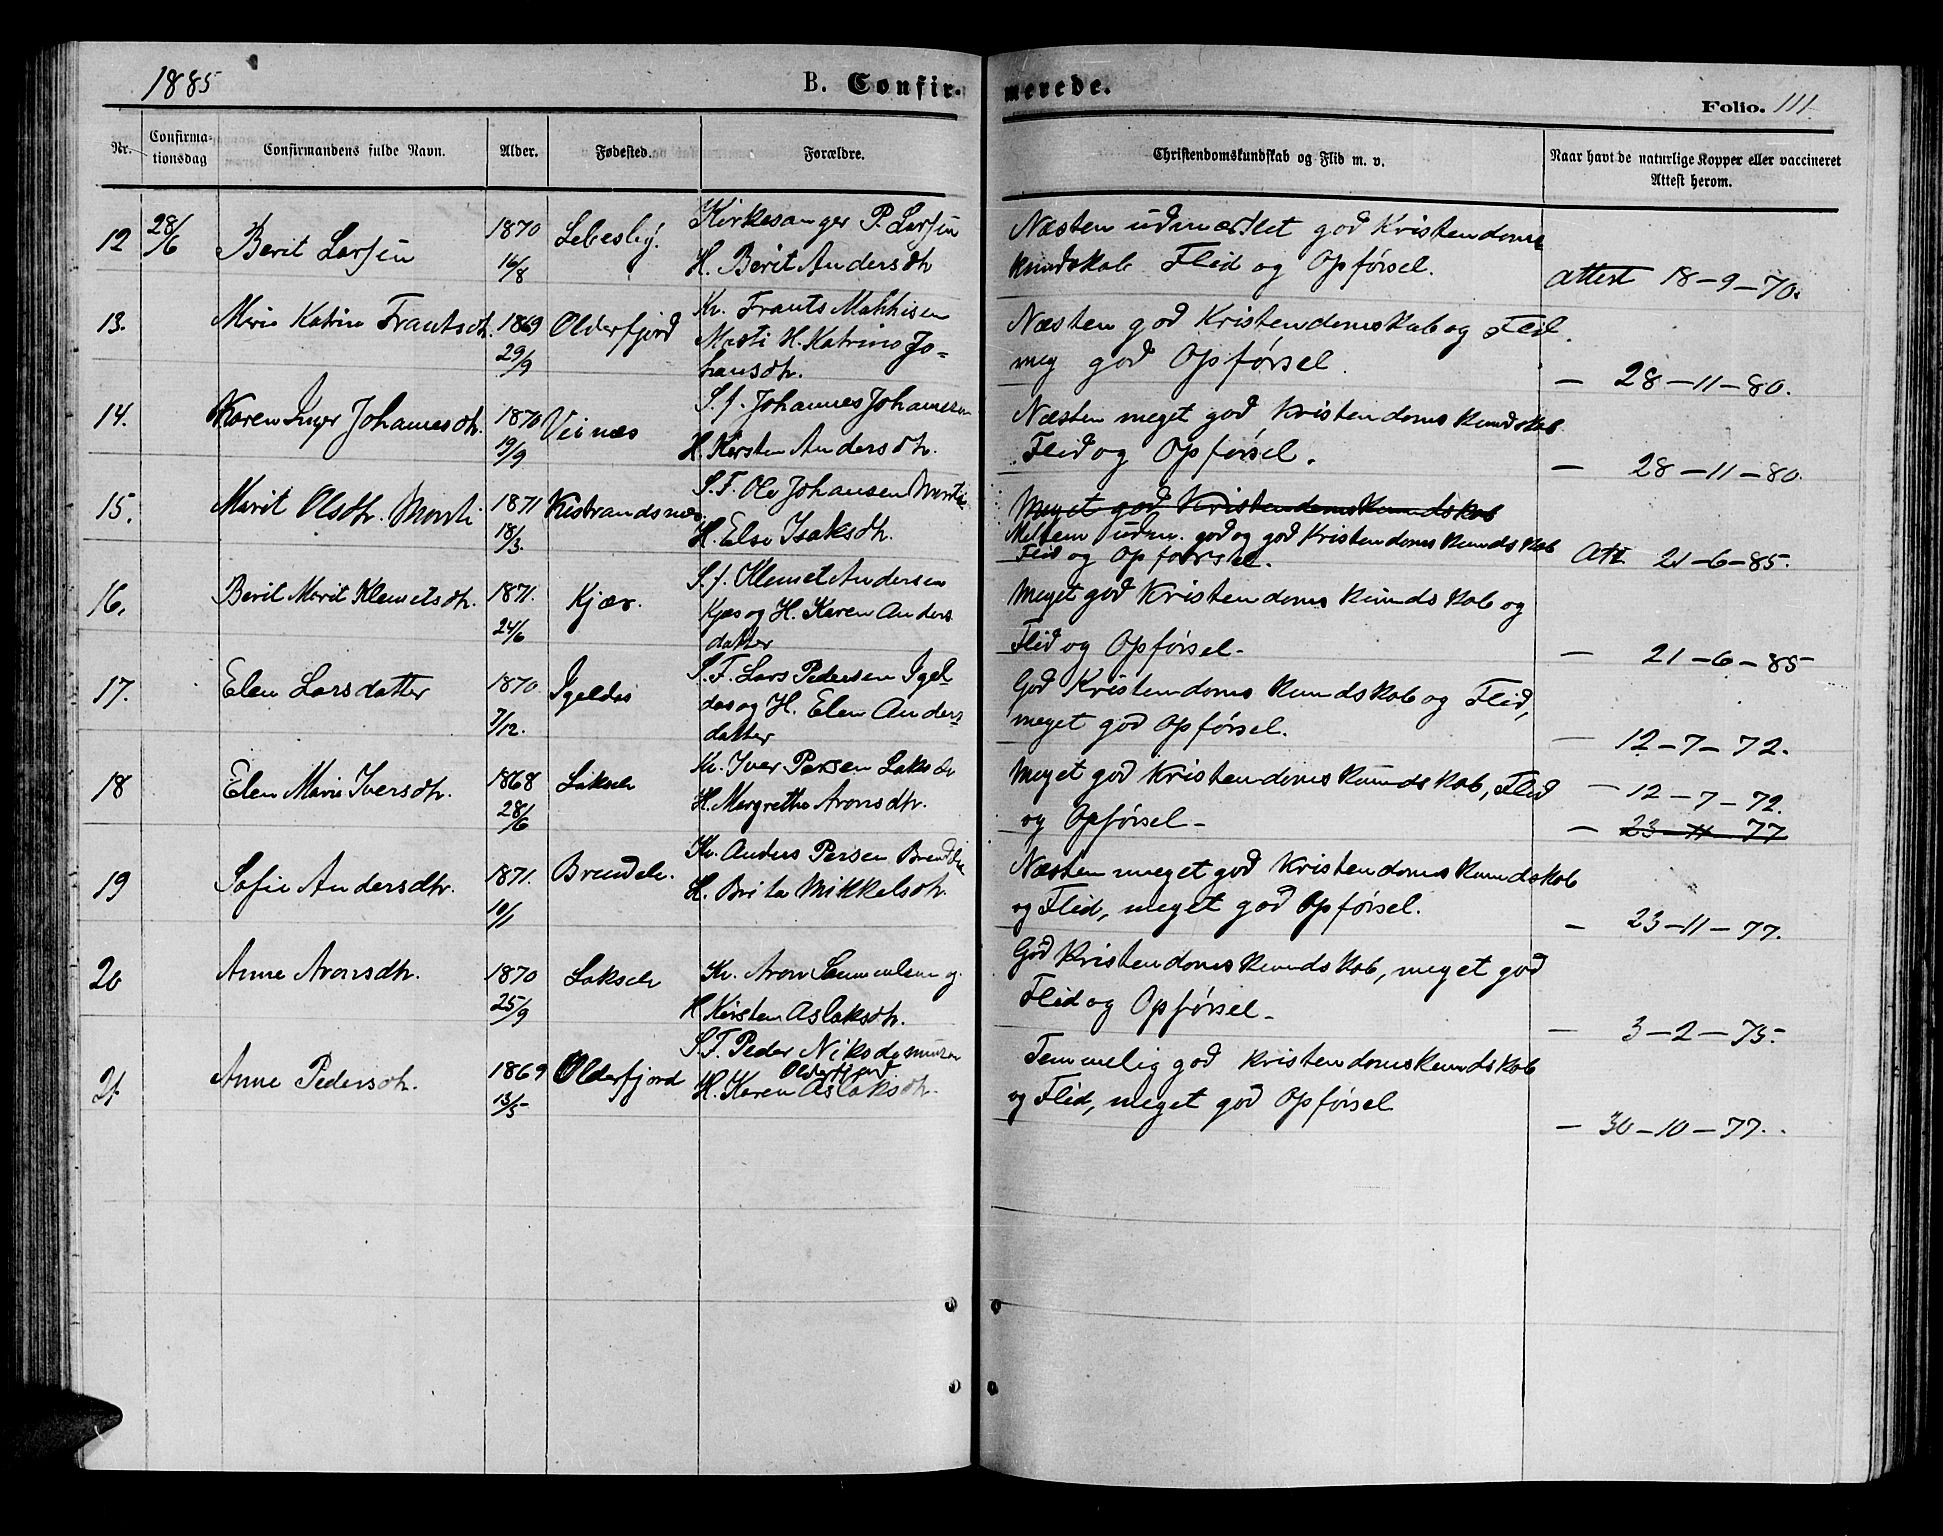 1885
B. Confir-
merede.
Folio. 111
Nr.
Confirma-
tionsdag
Confirmandens fulde Navn.
Alder.
Fødested.
Forældre.
Christendomskundskab og Flid m. v.
Naar havt de naturlige Kopper eller vaccineret
Attest herom.
12
28/6
Berit Larsen
1870
16/8
Lebesby.
Kirkesanger P. Larsen
H. Berit Andersdtr
Næsten udmærket god Kristendoms
kundskab Flid og Opførsel.
Attest 18-9-70.
13.
Marie Katrine Frantsdtr.
1869
29/9
Olderfjord
Kv. Frants Mathisen
Masti H. Katrine Jo-
hansdtr.
Næsten god Kristendomskab og Flid
meg god Opførsel.
— 28-11-80.
14.
Karen Inger Johannesdtr.
1870
19/9
Veinæs
S.f. Johannes Johannesen
H. Kersten Andersdtr.
Næsten meget god Kristendomskundskab
Flid og Opførsel.
— 28-11-80.
15.
Marit Olsdtr. Masti
1871
18/3.
Kistrandsnes.
S.F. Ole Johansen Masti
H. Else Isaksdtr.
Meget god Kristendomskundskab
Mellem udm. god og god Kristendomskundskab
Flid og Opførsel.
Att 21-6-85.
16.
Berit Marit Klemetsdtr.
1871.
24/6
Kjæs.
S.f. Klemet Andersen
Kjæs og H. Karen Anders
datter
Meget god Kristendomskundskab og
Flid og Opførsel-
— 21-6-85
17.
Elen Larsdatter
1870
7/12.
Igeldas
S.F. Lars Pedersen Igel-
das og H. Elen Anders
datter
God Kristendomskundskab og Flid,
meget god Opførsel.
— 12-7-72.
18
Elen Marie Iversdtr.
1868
28/6
Lakselv
Kv. Iver Persen Lakselv
H. Margrethe Aronsdtr.
Meget god Kristendomskundskab, Flid
og Opførsel-
— 12-7-72.
— 23-11-77
19
Sofie Andersdtr.
1871.
10/1
Brendelv.
Kv. Anders Persen Brendelv
H. Brita Mikkelsdtr.
Næsten meget god Kristendomskundskab
og Flid, meget god Opførsel.
— 23-11-77.
20
Anne Aronsdtr.
1870
25/9
Lakselv
Kv. Aron Sammelsen og
H Kirsten Aslaksdtr.
God Kristendomskundskab, meget god
Flid og Opførsel-
— 3-2-75.
21
Anne Pedersdtr.
1869
13/5
Olderfjord
S.F. Peder Nikodemusen
Olderfjord.
H. Karen Aslaksdtr.
Temmelig god Kristendomskundskab
og Flid, meget god Opførsel
— 30-10-77.